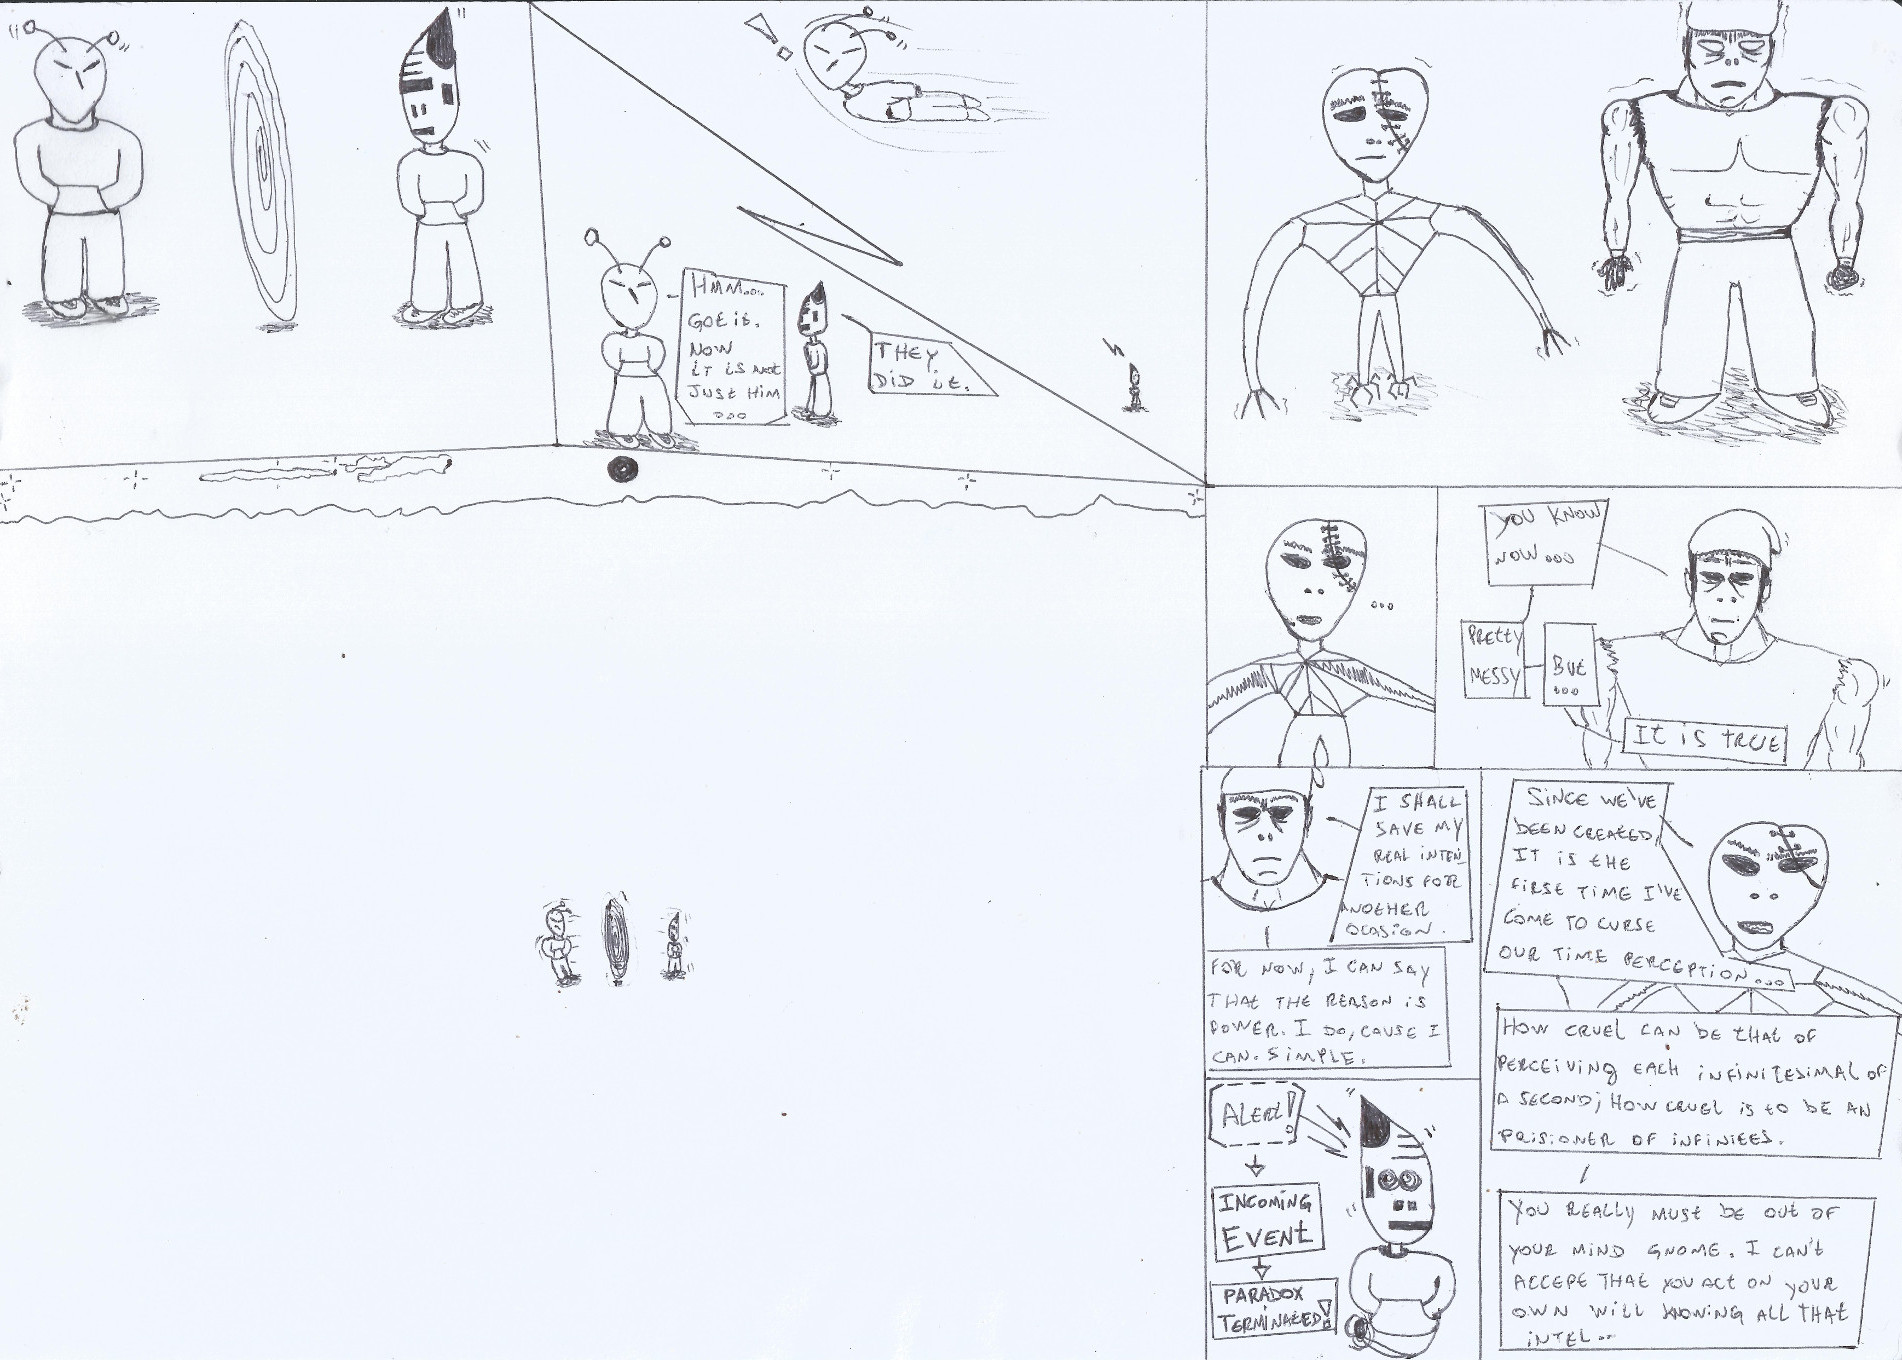 HMM...
GOT IT.
NOW
IT IS NOT
JUST HIM
...
THEY
DID IT.
...
YOU KNOW
NOW...
PRETTY
MESSY
BUT
...
IT IS TRUE
I SHALL
SAVE MY
REAL INTEN
TIONS FOR
ANOTHER
OCASION.
FOR NOW, I CAN SAY
THAT THE REASON IS
POWER. I DO, CAUSE I
CAN. SIMPLE.
SINCE WE'VE
BEEN CREATED,
IT IS THE
FIRST TIME I'VE
COME TO CURSE
OUR TIME PERCEPTION...
HOW CRUEL CAN BE THAT OF
PERCEIVING EACH INFINITESIMAL OF
A SECOND; HOW CRUEL IS TO BE AN
PRISIONER OF INFINITES.
YOU REALLY MUST BE OUT OF
YOUR MIND GNOME. I CAN'T
ACCEPT THAT YOU ACT ON YOUR
OWN WILL KNOWING ALL THAT
INTEL..
ALERT!
INCOMING
EVENT
PARADOX
TERMINATED!